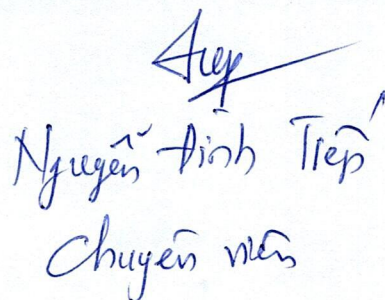 Nguyễn Đình Tiến
Chuyên viên